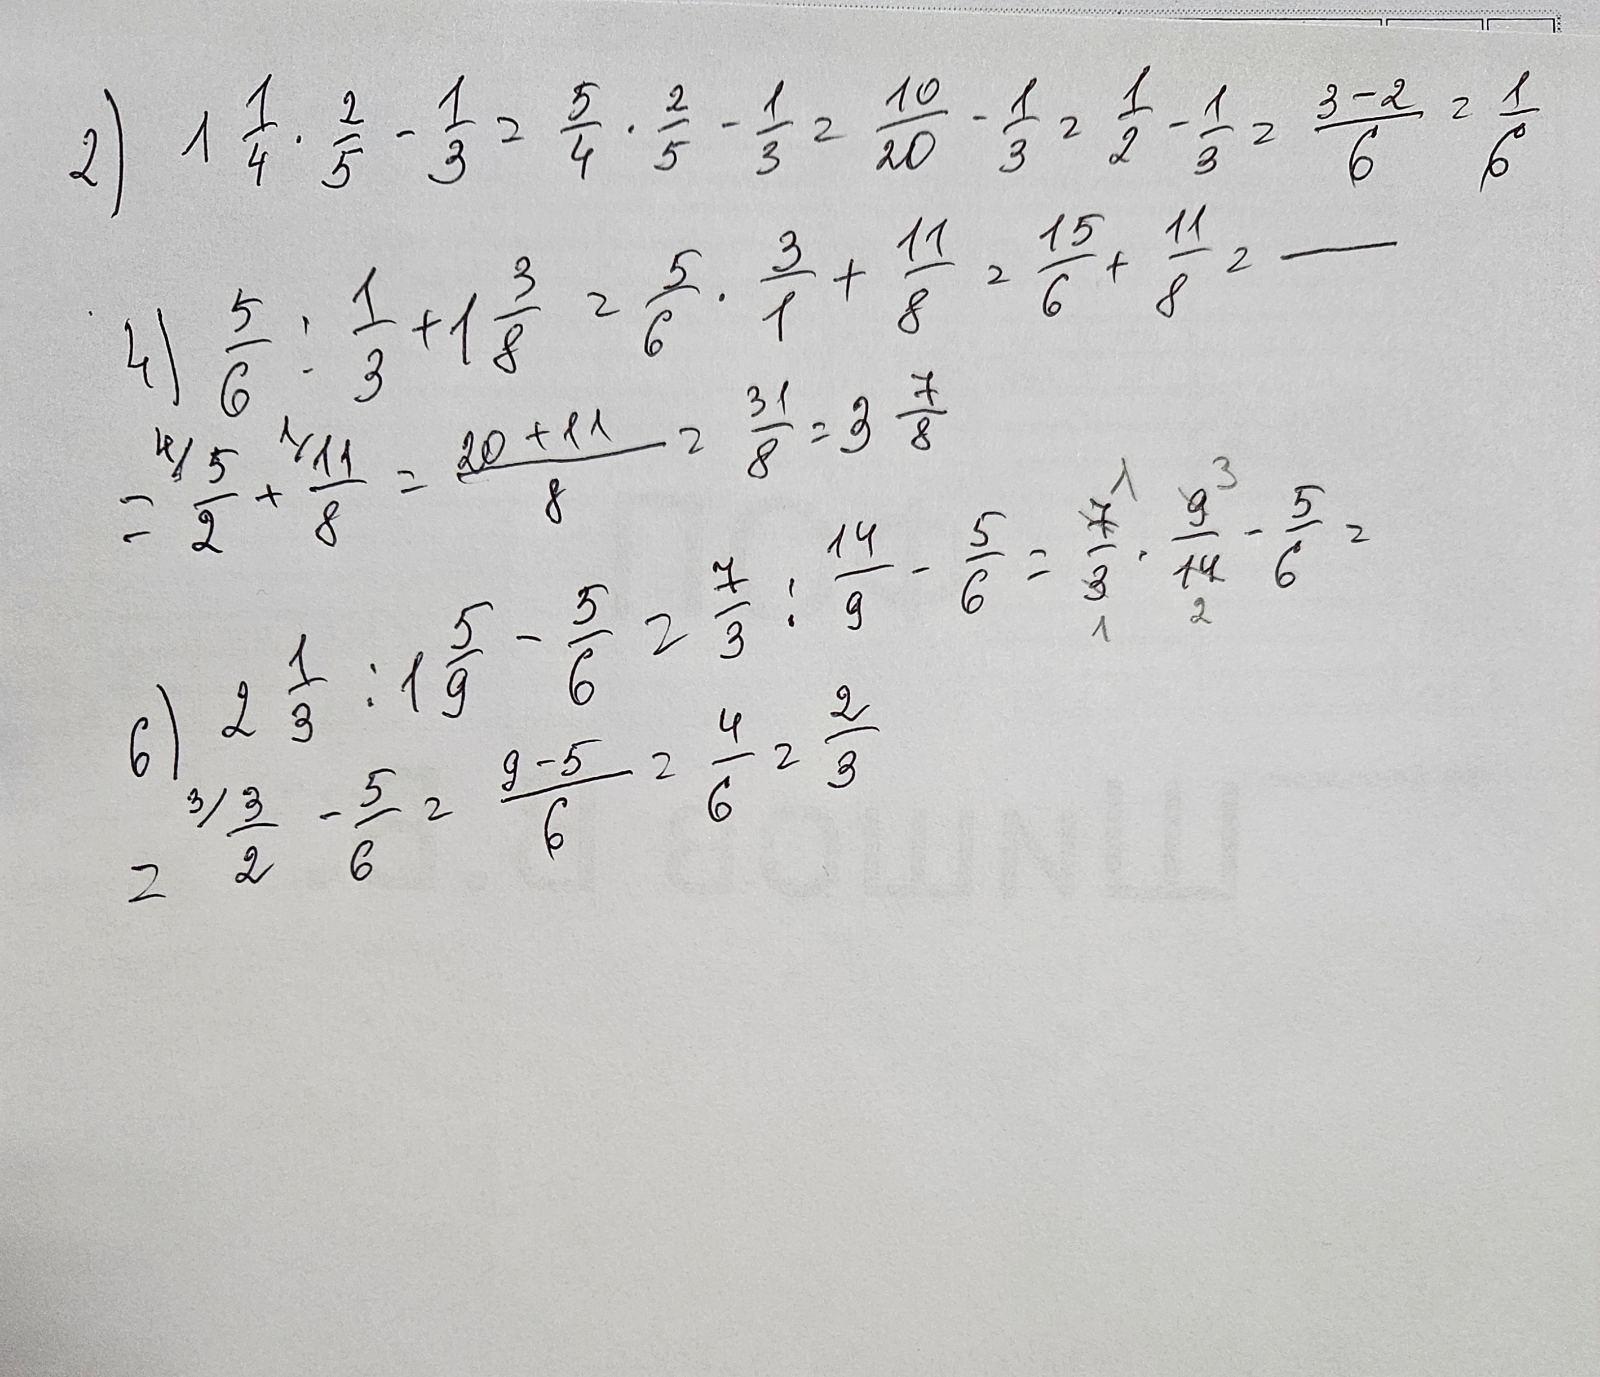 2) 1 1/4 · 2/5 - 1/3 = 5/4 · 2/5 - 1/3 = 10/20 - 1/3 = 1/2 - 1/3 = 3-2/6 = 1/6
4) 5/6 : 1/3 + 1 3/8 = 5/6 · 3/1 + 11/8 = 15/6 + 11/8 = —
= 4/ 5/2 + 1/ 11/8 = 20+11/8 = 31/8 = 3 7/8
6) 2 1/3 : 1 5/9 - 5/6 = 7/3 : 14/9 - 5/6 = 7 1/3 1 · 9 3/14 2 - 5/6 =
= 3/ 3/2 - 5/6 = 9-5/6 = 4/6 = 2/3